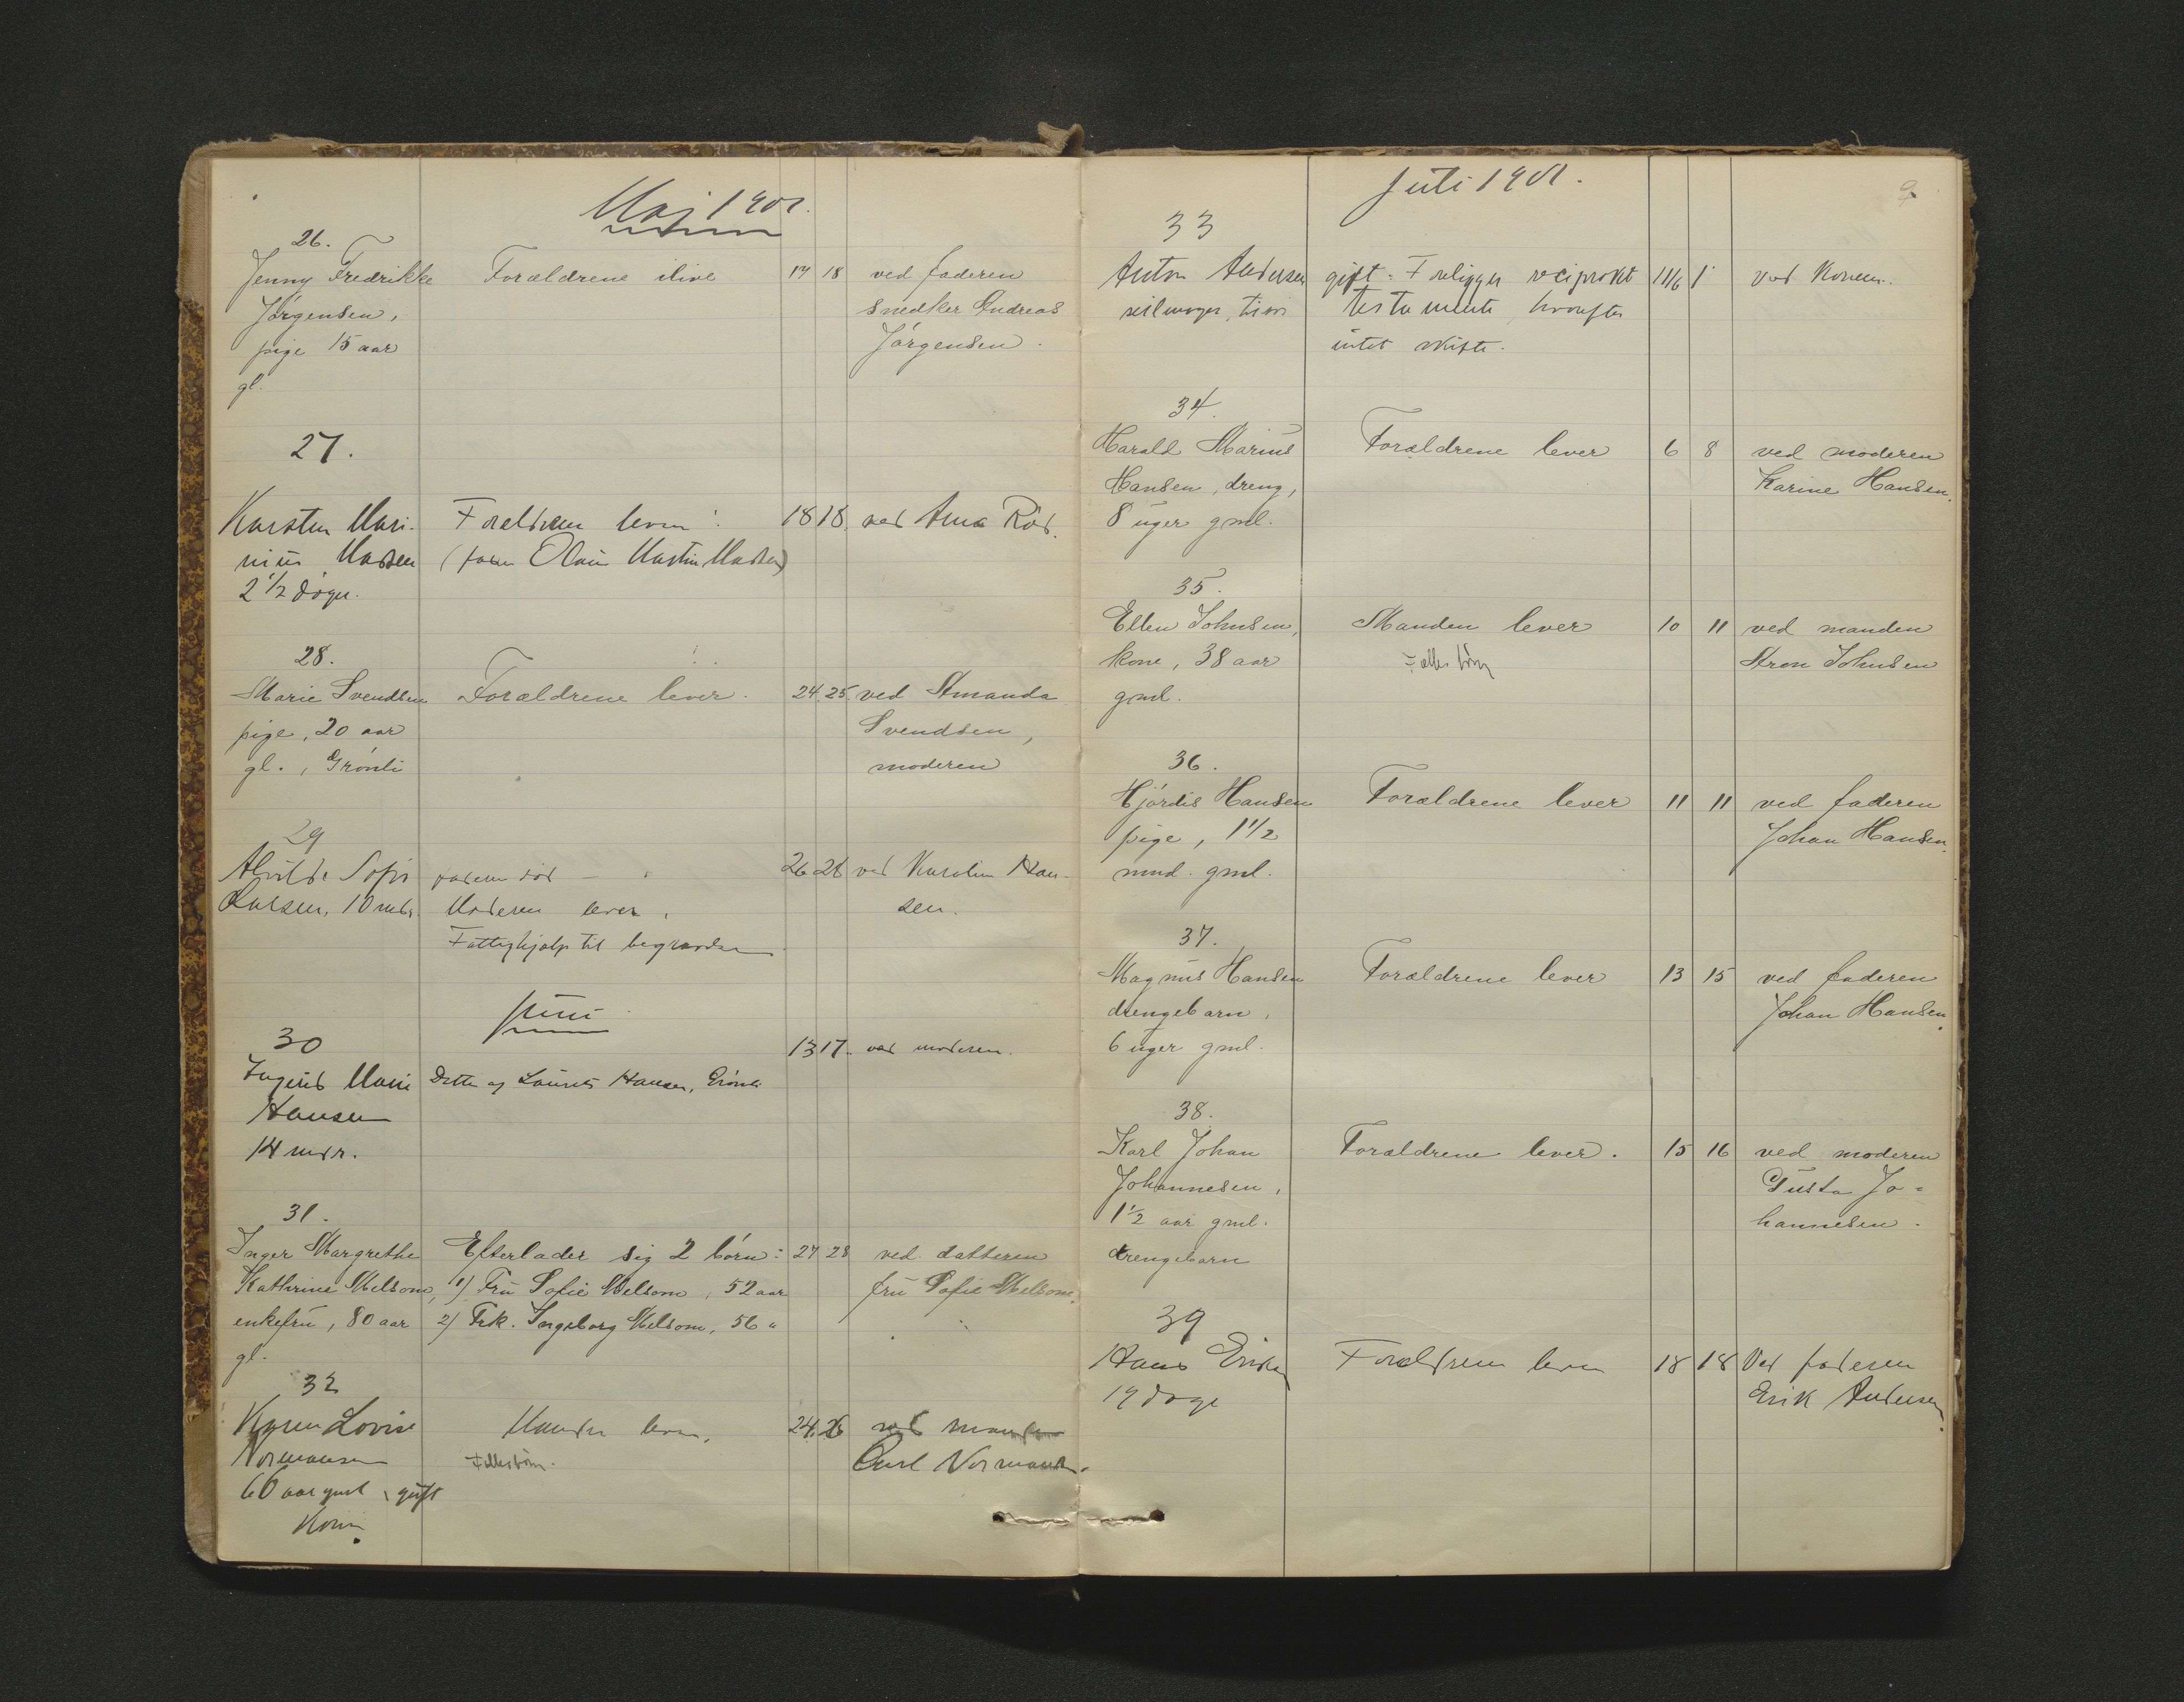 Mai 1901.
26.
Jenny Fredrikke Forældrene ilive 17 18 ved faderen
Jørgensen, snedker Andreas
pige 15 aar Jørgensen.
gl.
27.
Karsten Mari- Forældrene lever. 18 18. ved Anna Rød.
nius Madsen (faren Olaus Martin Madsen)
2 1/2 døgn.
28.
Marie Svendsen Forældrene lever. 24. 25. ved Amanda
pige, 20 aar Svendsen,
gl., Grønli moderen
29
Alvilde Sofie faderen død — 26 28 ved Karoline Han-
Larsen, 10 mdr. Moderen lever. sen.
Fattighjælp til begravelsen
Juni
30 13 17. ved moderen.
Ingerid Marie Datter af Laurits Hansen, Grønli
Hansen
14 mdr.
31.
Inger Margrethe Efterlader sig 2 børn: 27 28 ved datteren
Kathrine Melsom, 1) Fru Sofie Melsom, 52 aar fru Sofie Melsom.
enkefru, 80 aar 2) Frk. Ingeborg Melsom, 56 "
gl.
32
Karen Lovise Manden lever. 24. 26 ved manden
Normansen Fællesbørn. Carl Normansen.
60 aar gml, gift
Kone.
Juli 1901.
9
33
Anton Andersen gift. Foreligger reciprokt 11/6 1 ved Konen.
seilmager, testamente, hvorefter
intet skifte.
34.
Harald Marius Forældrene lever 6 8 ved moderen
Hansen, dreng, Karine Hansen.
8 uger gml.
35.
Ellen Johnsen, Manden lever 10 11 ved manden
kone, 38 aar Fælles børn Aron Johnsen
gml.
36.
Hjørdis Hansen Forældrene lever 11 11 ved faderen
pige, 1 1/2 Johan Hansen.
mnd. gml.
37.
Magnus Hansen Forældrene lever 13 15 ved faderen
drengebarn, Johan Hansen.
6 uger gml.
38.
Karl Johan Forældrene lever. 15 16 ved moderen
Johannesen, Gusta Jo-
1 1/2 aar gml. hannesen.
drengebarn
39
Hans Eriksen Forældrene lever 18 18 Ved faderen
19 dage Erik Andersen.